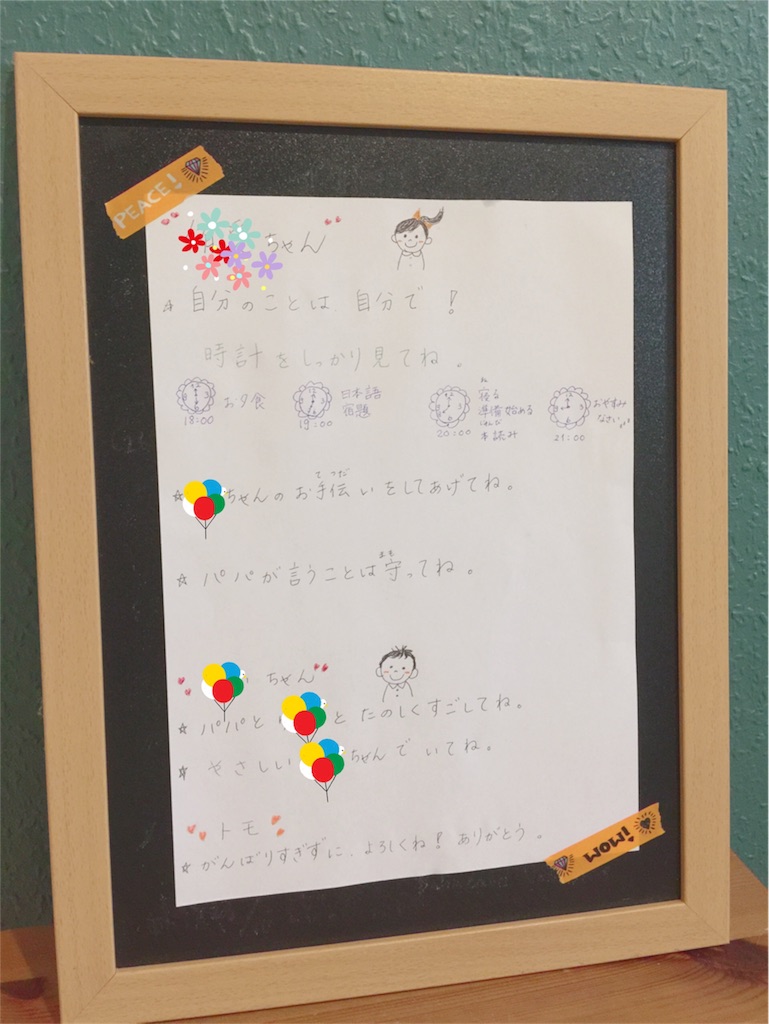 PEACE!
ちゃん
☆ 自分のことは 自分で!
時計をしっかり見てね。
お夕食
18:00
日本語
宿題
19:00
ね
寝る
準備始める
じゅんび
本読み
20:00
おやすみ
なさい
21:00
てつだ
☆ ちゃんのお手伝いをしてあげてね。
まも
☆ パパが言うことは守ってね。
ちゃん
☆ パパと と たのしくすごしてね。
☆ やさしい ちゃんで いてね。
トモ
☆ がんばりすぎずに、よろしくね! ありがとう。
MOM!